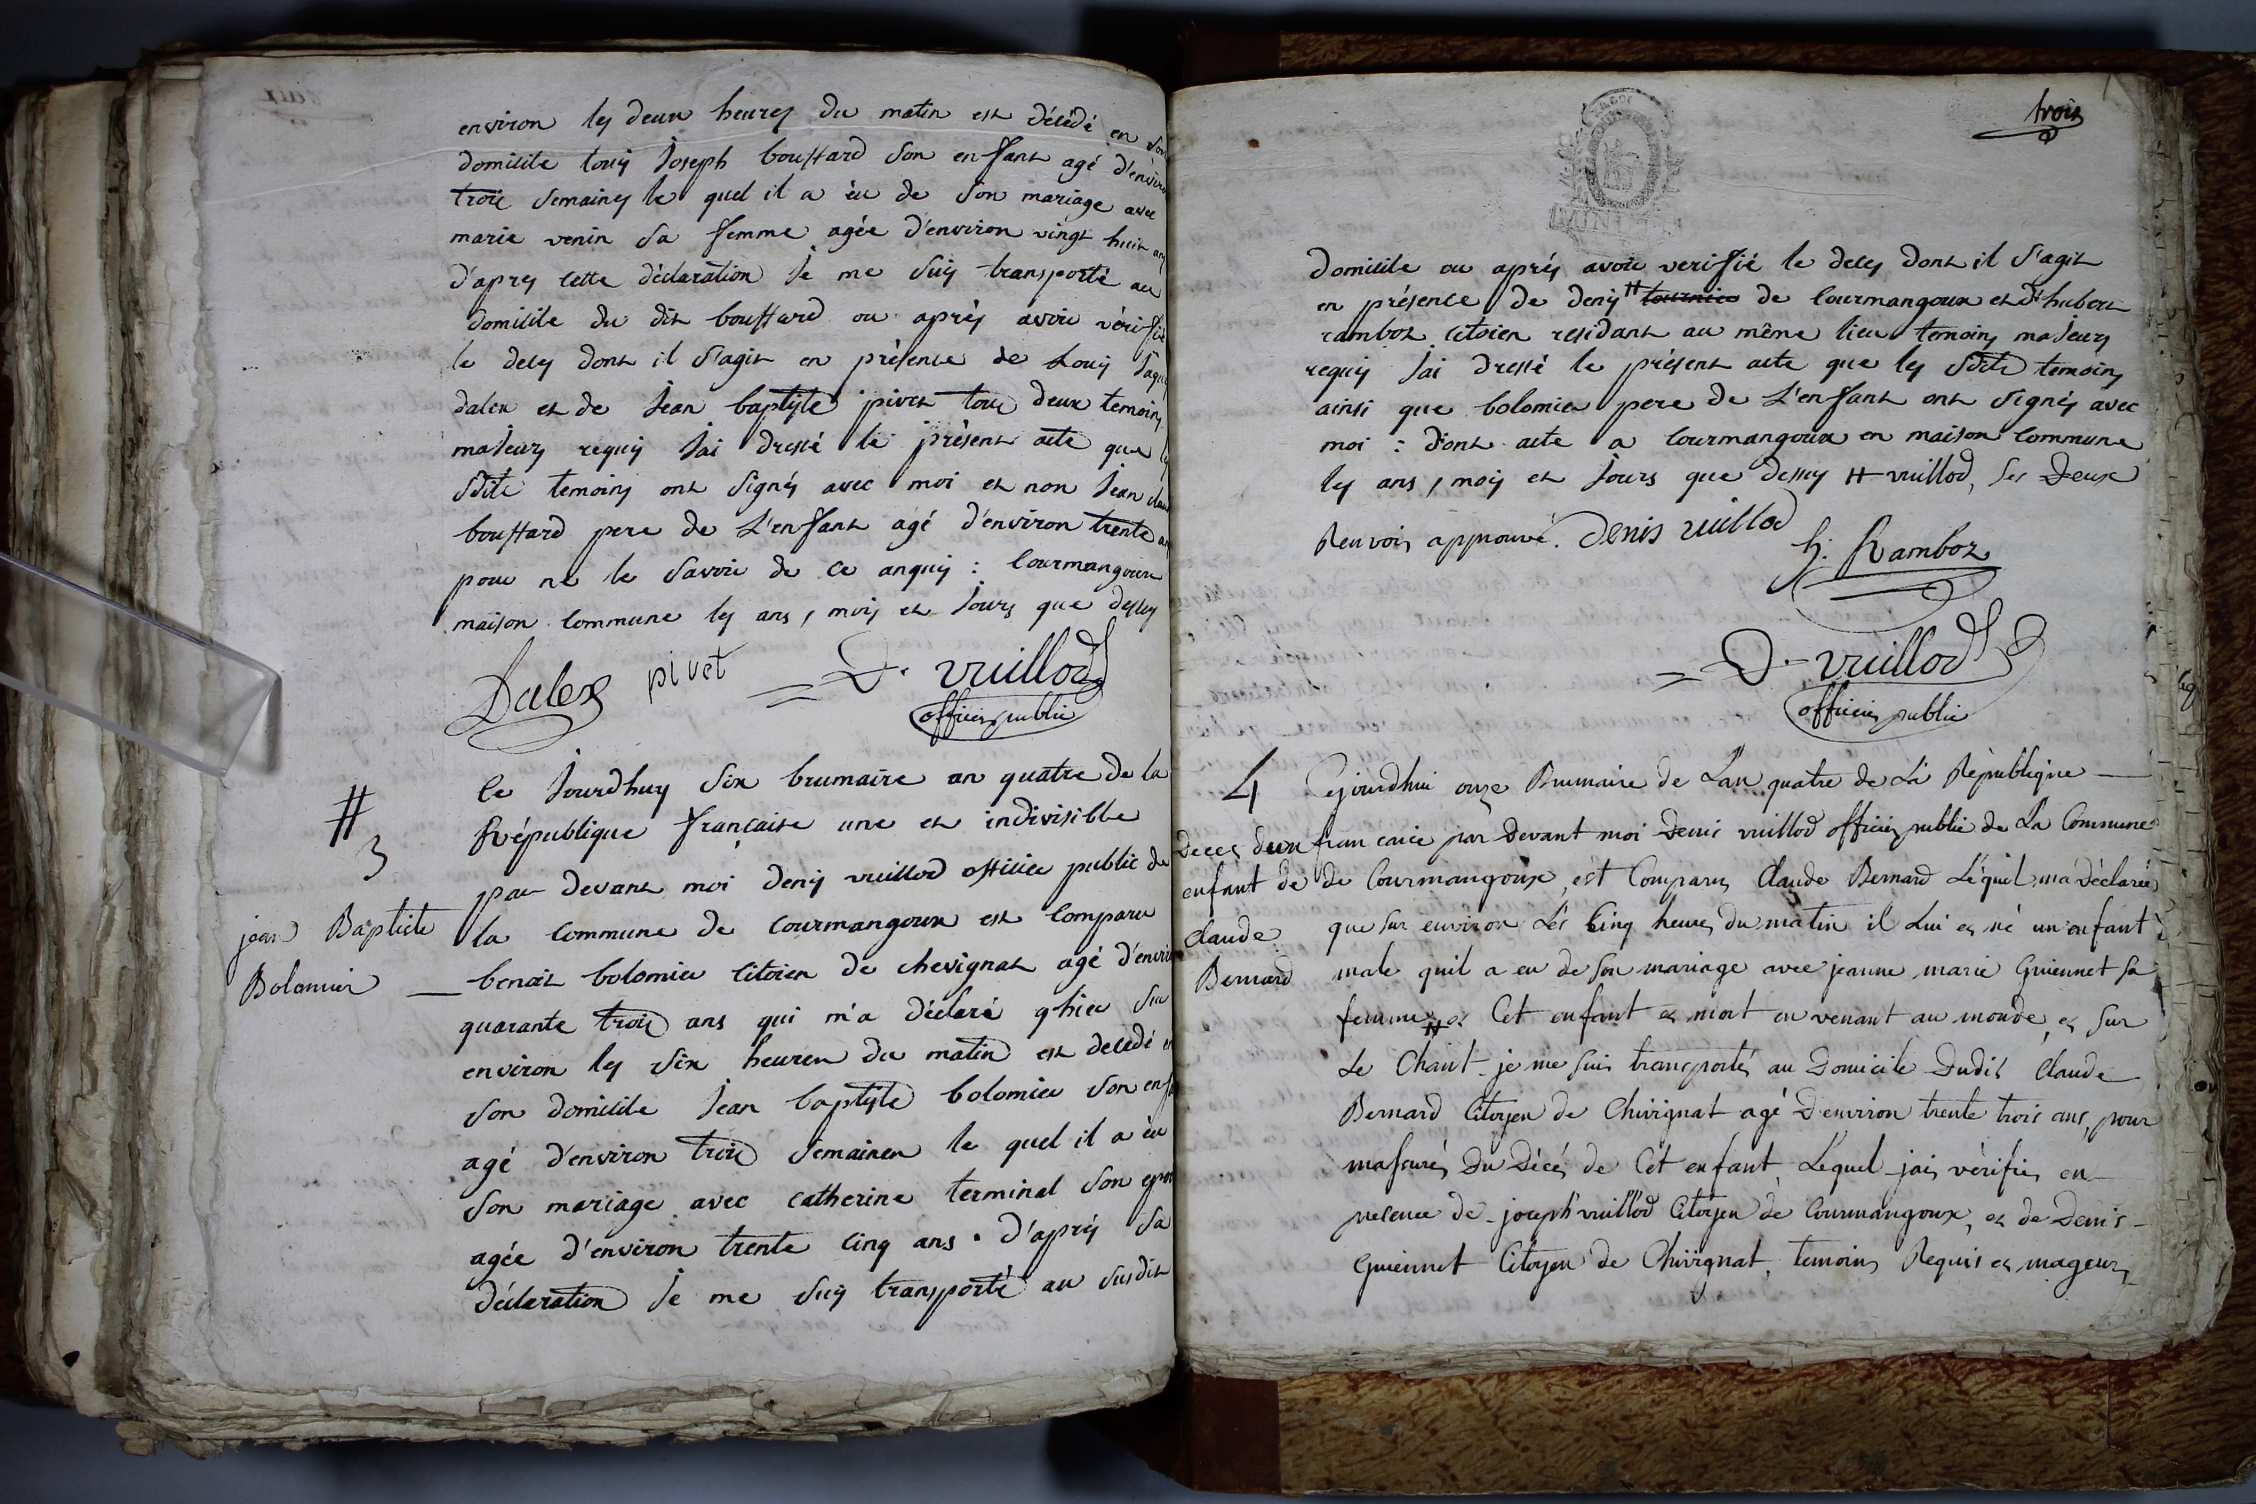 environ les deux heures du matin est décédé en son
domicile louis Joseph bouffard son enfant agé d'environ
trois semaines le quel il a èu de son mariage avec
marie venin sa femme agée d'environ vingt huit ans
d'apres cette déclaration Je me suis transporté au
domicile du dit bouffard ou après avoir vérifié
le deces dont il s'agit en présence de Louis Jaque
dalex et de Jean baptiste pivet tous deux temoins
majeurs requis Jai dressé le présent acte que les
sdits temoins ont signés avec moi et non Jean claude
bouffard pere de L'enfant agé d'environ trente ans
pour ne le savoir de ce anquis : Courmangoux
maison commune les ans, mois et Jours que dessus
Dalex pivet D. vuillod
officier public
#
3
jean Baptiste
Bolomier
Ce Jourdhuy six brumaire an quatre de la
République française une et indivisible
par devant moi denis vuillod officier public de
la commune de courmangoux est comparu
benoit bolomier citoien de chevignat agé d'environ
quarante trois ans qui m'a déclaré qhier sur
environ les six heures du matin est decedé en
son domicile Jean baptiste bolomier son enfant
agé d'environ trois semaines le quel il a èu
son mariage avec catherine terminal son epouse
agée d'environ trente cinq ans. D'après sa
déclaration Je me suis transporté au susdit
trois
domicile ou après avoir verifié le deces dont il s'agit
en présence de denis # tournier de Courmangoux et d'hubert
ramboz citoien residant au même lieu temoins majeurs
requis Jai dressé le présent acte que les sdits temoins
ainsi que bolomier pere de L'enfant ont signés avec
moi : dont acte a Courmangoux en maison commune
les ans, mois et Jours que dessus # vuillod, les deux
Renvois approuvé. Denis vuillod
h. Ramboz
D. vuillod
officier public
4
Deces d'un
enfant de
Claude
Bernard
Cejourdhui onze Brumaire de L'an quatre de La République
francaice par devant moi Denis vuillod officier public de La Commune
de Courmangoux, est Comparus Claude Bernard Lequel ma déclarée
que sur environ Les Cinq heures du matin il Lui es né un enfant
male quil a eu de son mariage avec jeanne marie Guiennet sa
femme # et Cet enfant es mort en venant au monde, es sur
Le Chant je me suis transportés au Domicile Dudit Claude
Bernard Citoyen de Chivignat agé D'environ trente trois ans, pour
massurés Du Décés de Cet enfant, Lequel jais vérifiés en
presence de joseph vuillod Citoyen de Courmangoux, es de Denis
Guiennet Citoyen de Chivignat, temoins Requis es mageurs